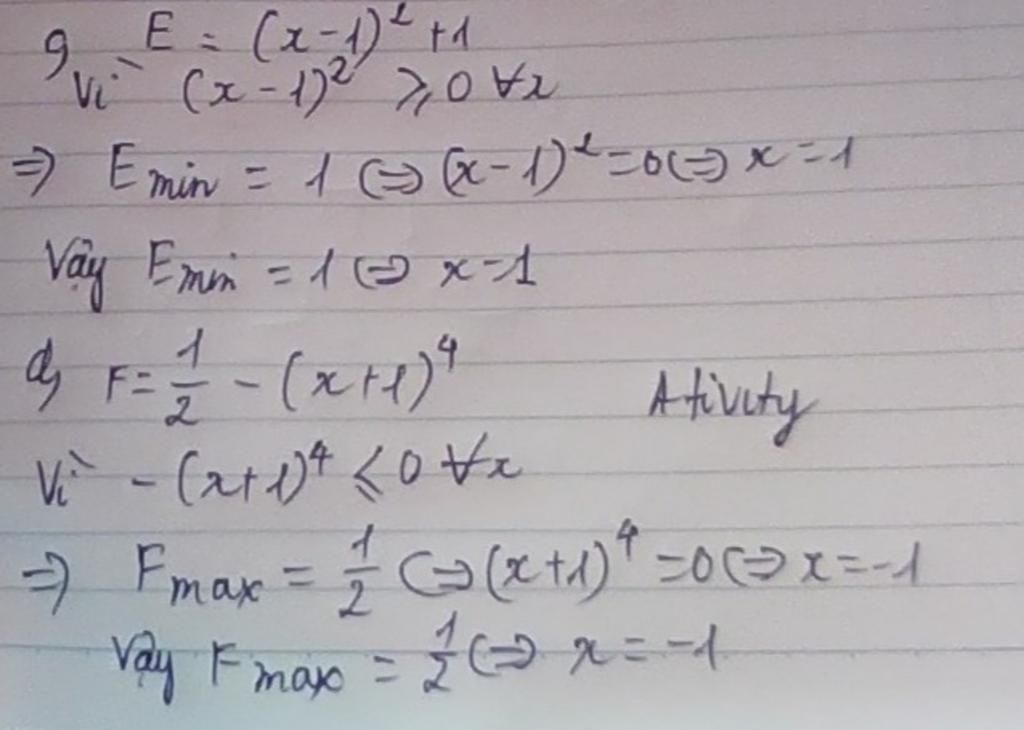 c, E = (x-1)² +1
Vì (x-1)² ⩾ 0 ∀x
=> E min = 1 <=> (x-1)² = 0 <=> x = 1
Vậy E min = 1 <=> x = 1
d, F = 1/2 - (x+1)⁴
Ativity
Vì - (x+1)⁴ ⩽ 0 ∀x
=> F max = 1/2 <=> (x+1)⁴ = 0 <=> x = -1
Vậy F max = 1/2 <=> x = -1